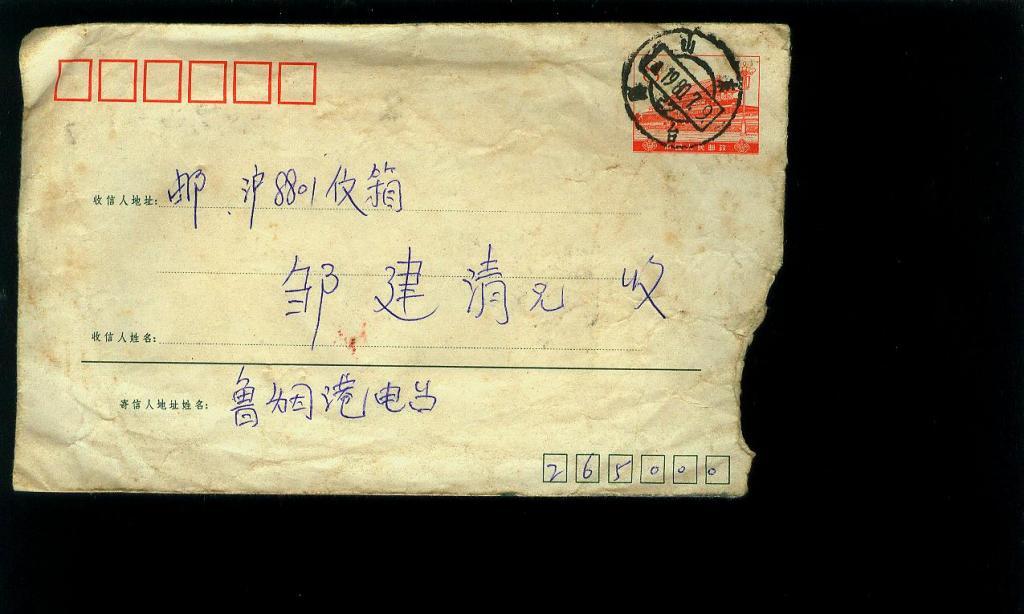 山东
烟台
1980.7.9
中国人民邮政
收信人地址: 邮 沪8801仪箱
邹建清兄 收
收信人姓名:
寄信人地址姓名: 鲁烟港电台
265000